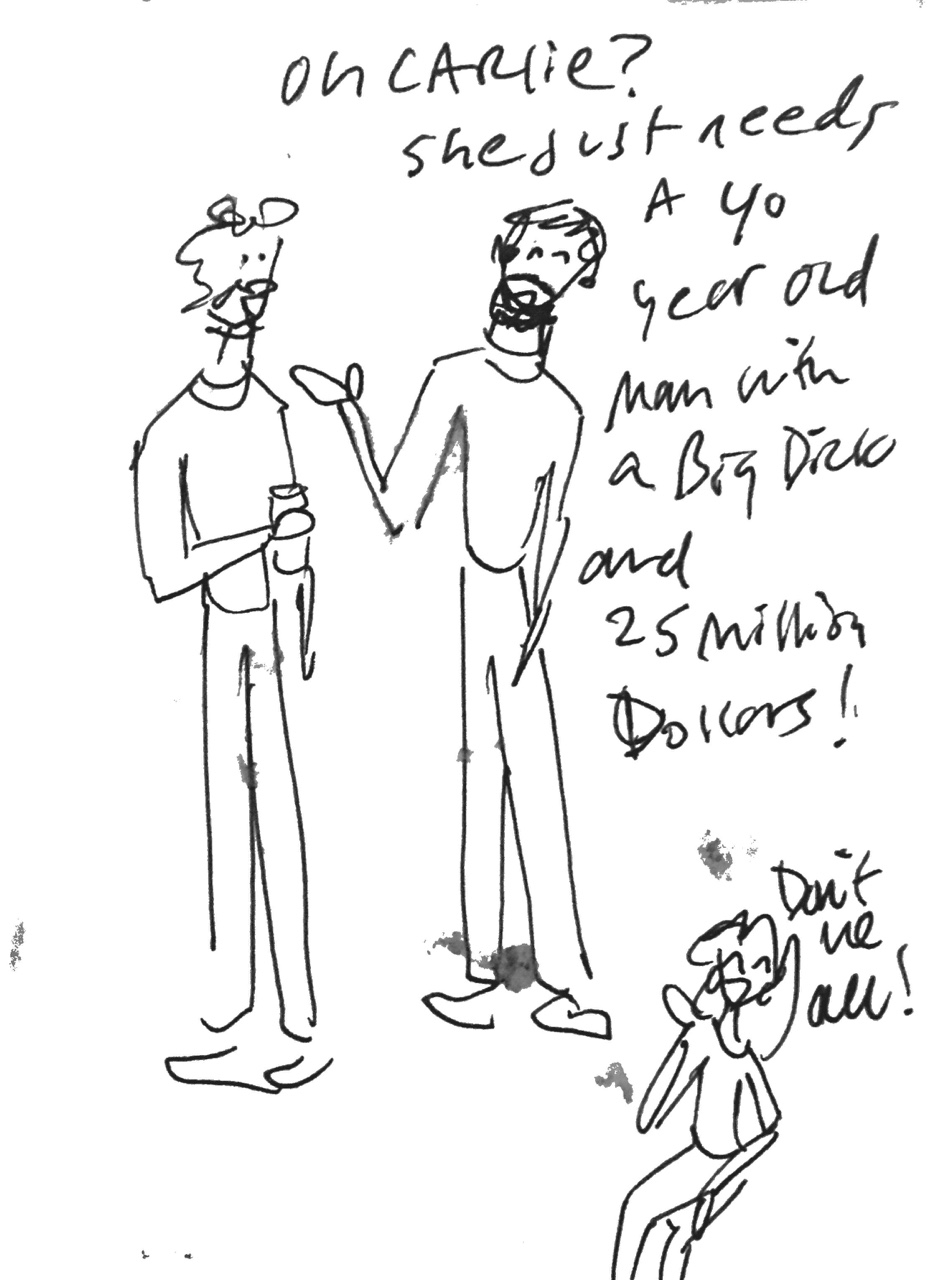 oh CARlie?
she Just needs
A 40
year old
man with
a Big Dick
and
25 million
Dollars!
Don't
we
all!